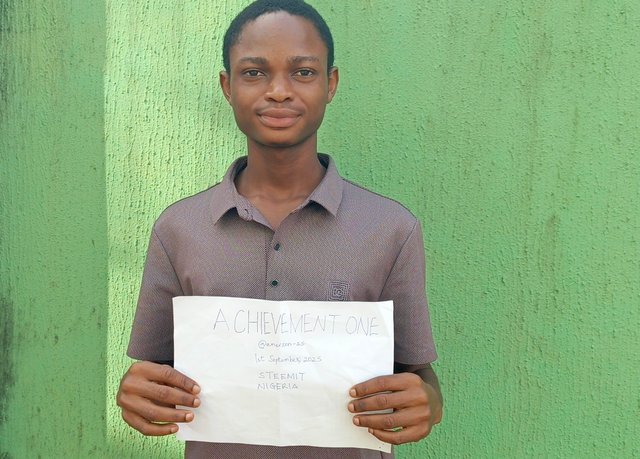 ACHIEVEMENT ONE
1st September, 2025
STEEMIT
NIGERIA